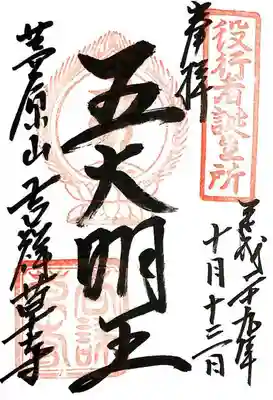 役行者誕生所
奉拝
平成二十九年
十月十三日
五大明王
茅原山 吉祥草寺